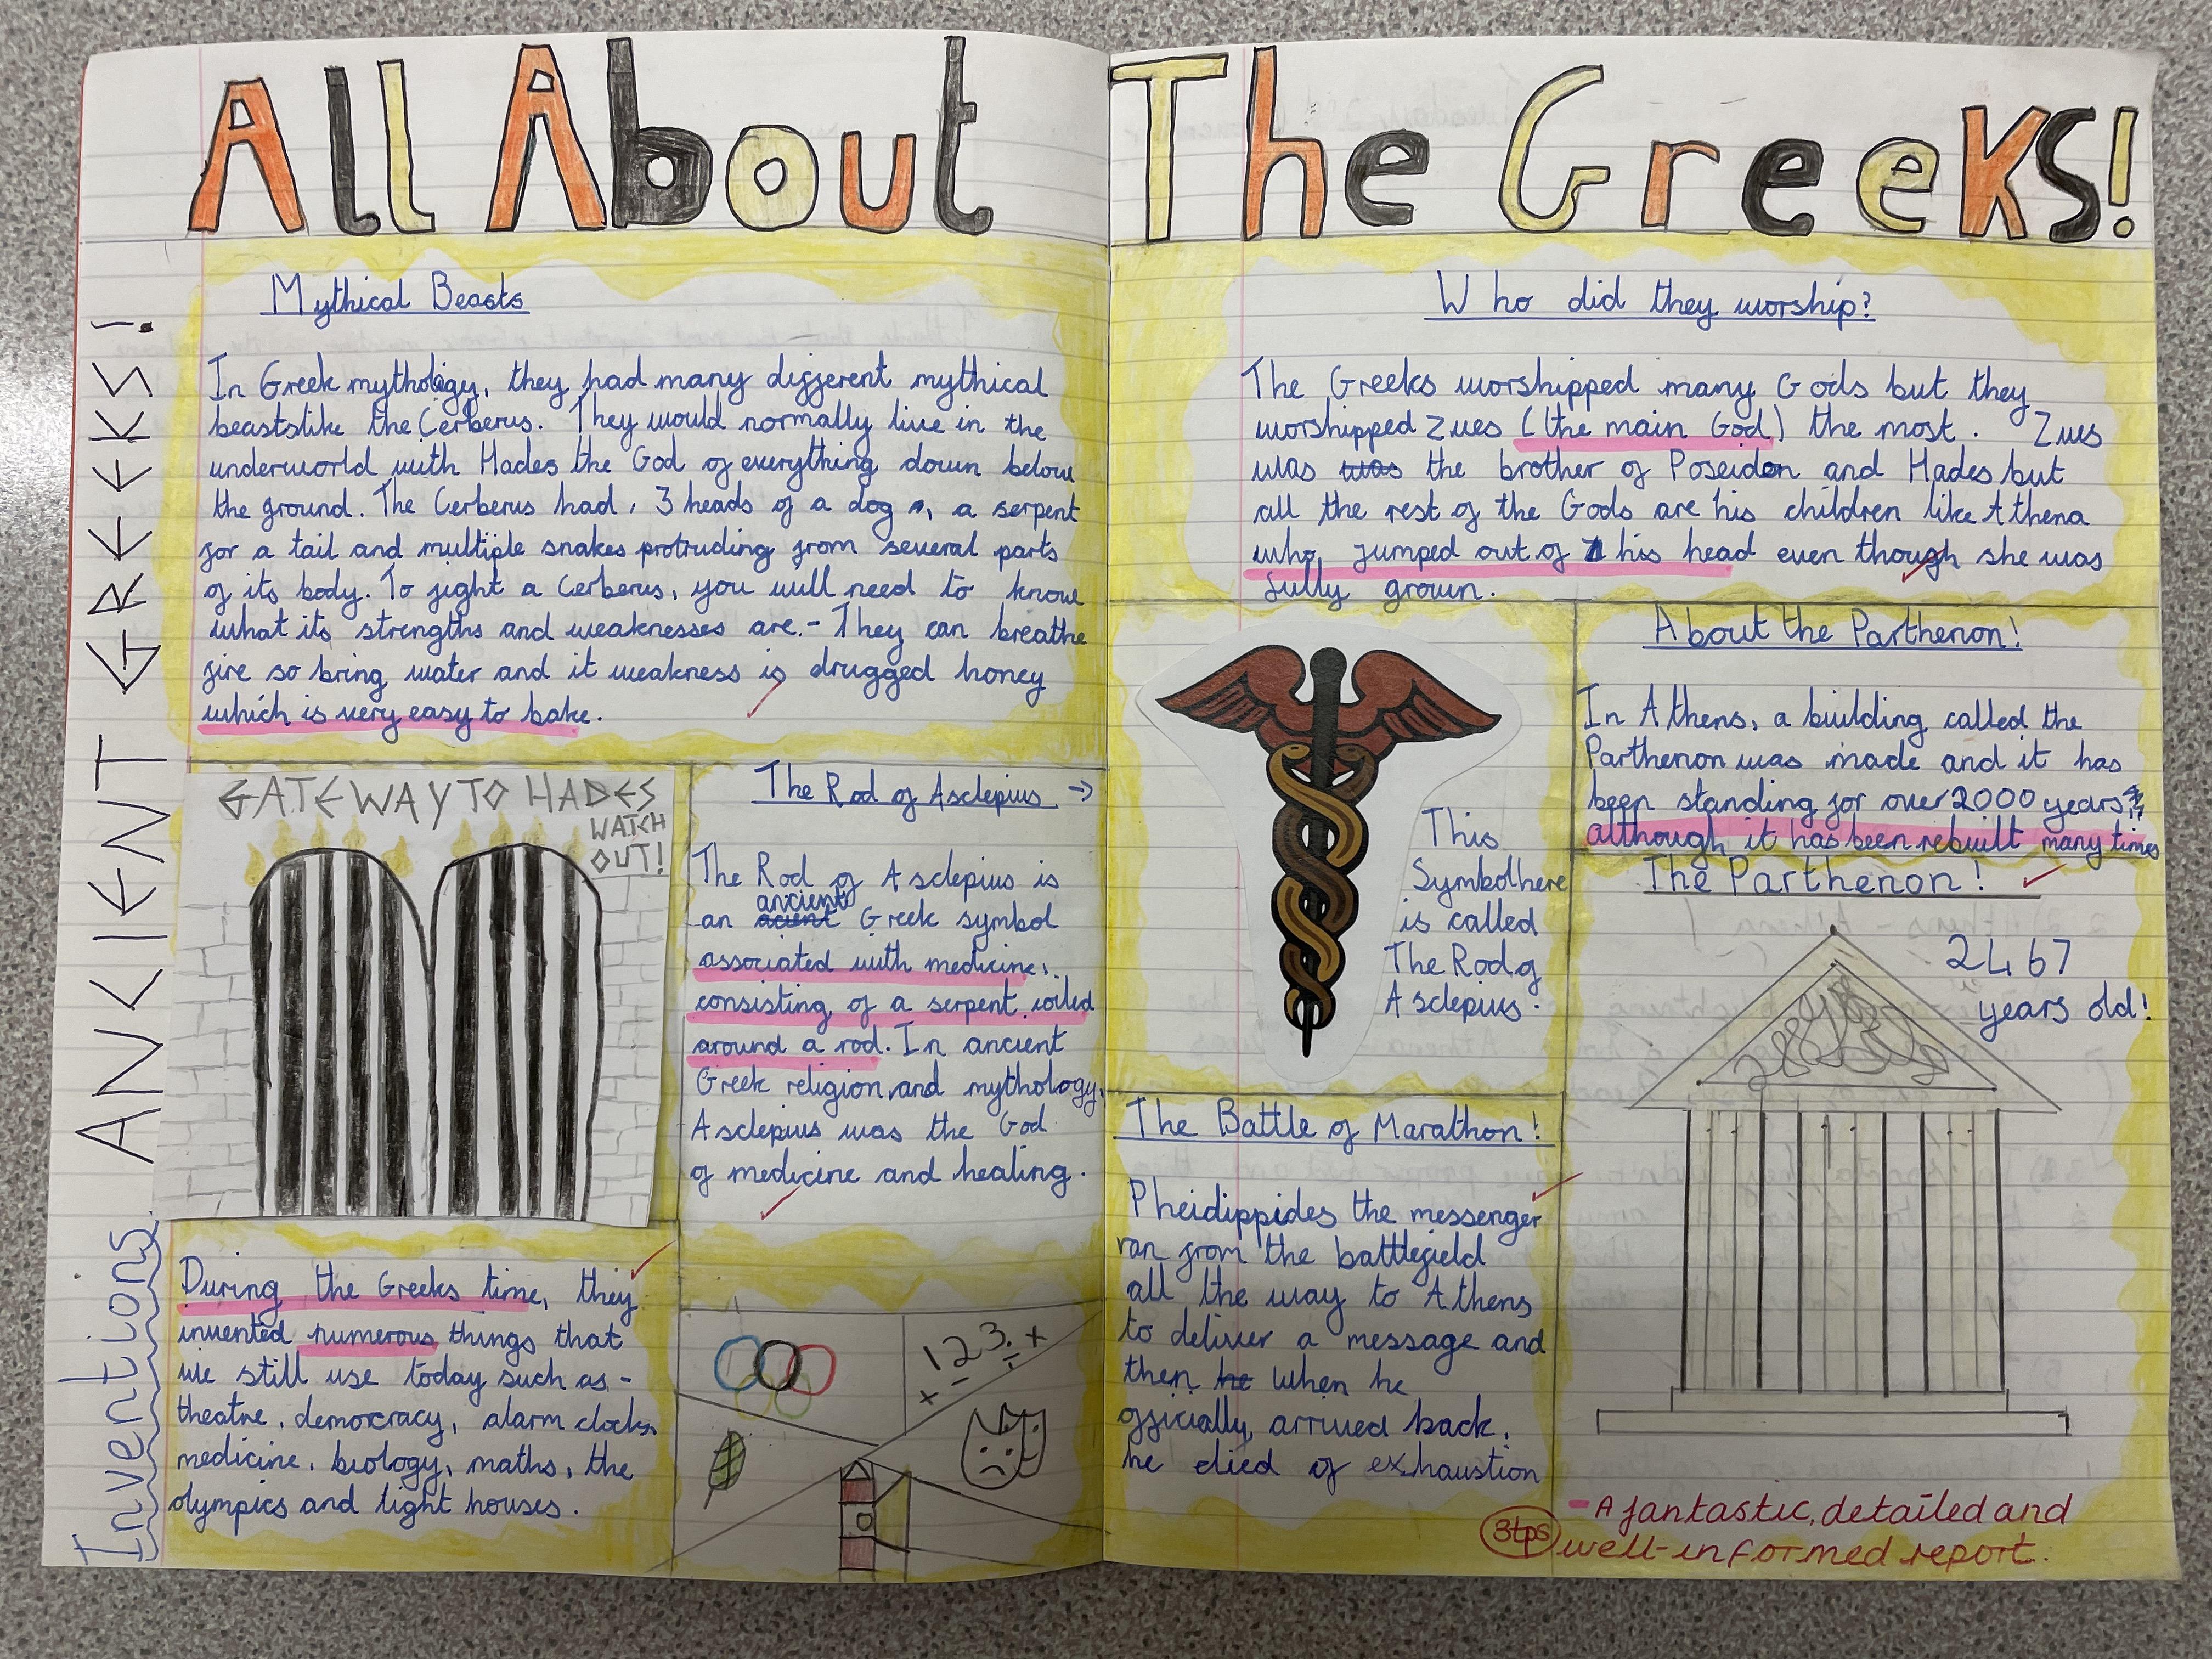 All About The Greeks!
ANKIENT GREEKS!
Mythical Beasts
In Greek mythology, they had many different mythical
beastslike the Cerberus. They would normally live in the
underworld with Hades the God of everything down below
the ground. The Cerberus had, 3 heads of a dog, a serpent
for a tail and multiple snakes protruding from several parts
of its body. To fight a Cerberus, you will need to know
what its strengths and weaknesses are.- They can breathe
fire so bring water and it weakness is drugged honey
which is very easy to bake.
GATEWAY TO HADES
WATCH
OUT!
The Rod of Asclepius →
The Rod of Asclepius is
an acient ancient Greek symbol
associated with medicine,
consisting of a serpent coiled
around a rod. In ancient
Greek religion and mythology,
Asclepius was the God
of medicine and healing.
Inventions
During the Greeks time, they
invented numerous things that
we still use today such as -
theatre, democracy, alarm clocks,
medicine, biology, maths, the
olympics and light houses.
123.
Who did they worship?
The Greeks worshipped many Gods but they
worshipped Zues (the main God) the most. Zues
was was the brother of Poseidon and Hades but
all the rest of the Gods are his children like Athena
who jumped out of his head even though she was
fully grown.
This
Symbol here
is called
The Rod of
Asclepius.
About the Parthenon!
In Athens, a building called the
Parthenon was made and it has
been standing for over 2000 years
although it has been rebuilt many times
The Parthenon!
2467
years old!
The Battle of Marathon!
Pheidippides the messenger
ran from the battlefield
all the way to Athens
to deliver a message and
then he when he
offically arrived back,
he died of exhaustion
3tps
- A fantastic, detailed and
well-informed report.